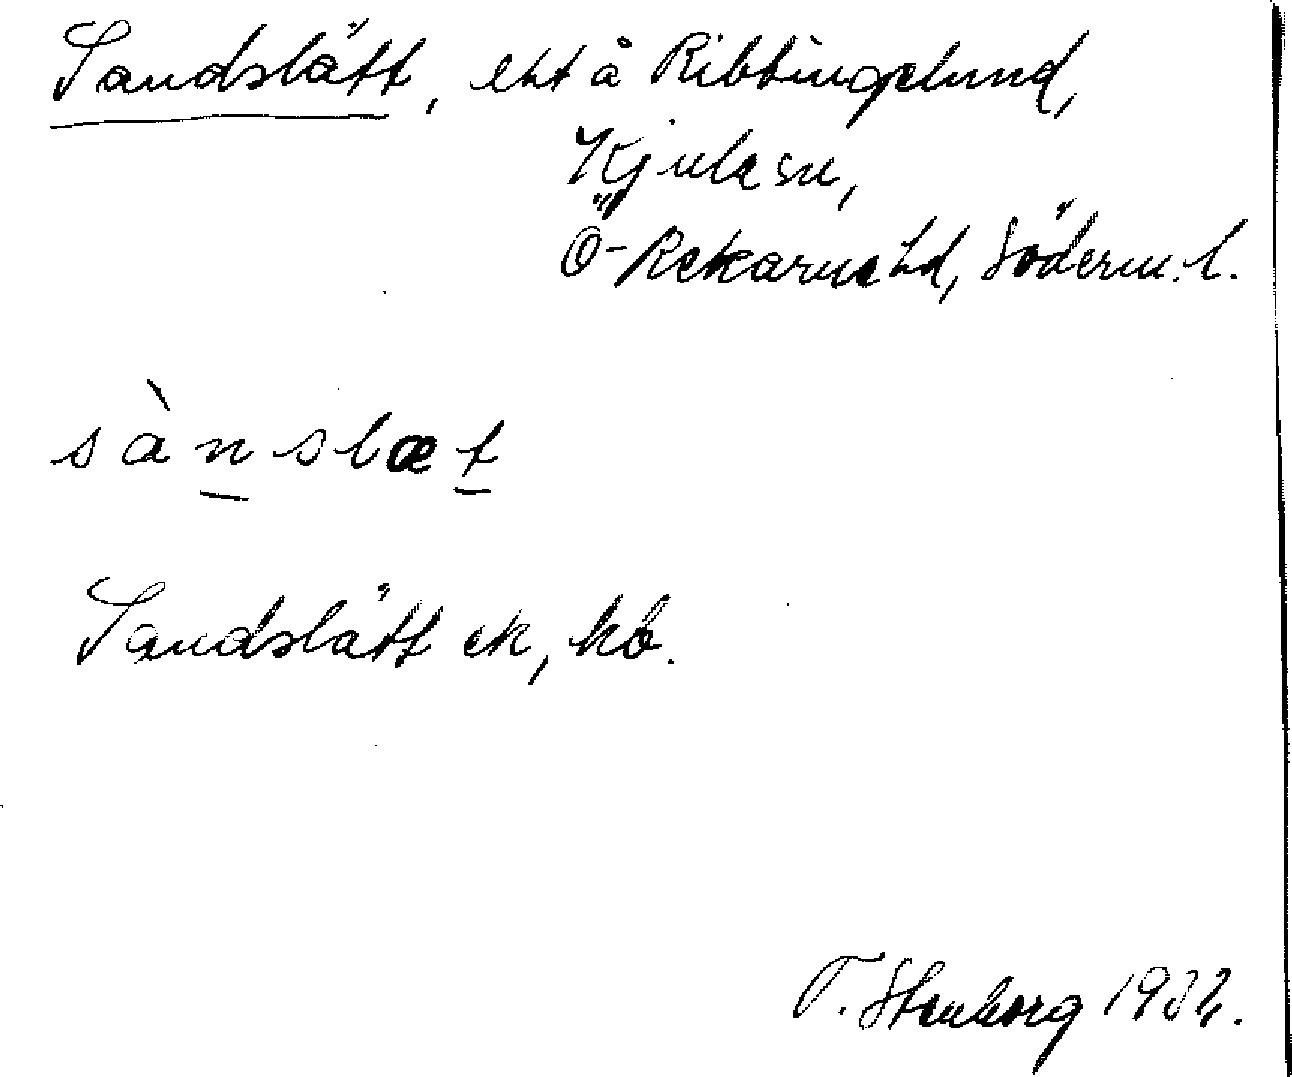 Sandslätt, ext å Ribbingelund,
Kjula sn,
Ö-Rekarne hd, Söderm. l.
sànslæt
Sandslätt ek, kb.
T. Stenborg 1932.